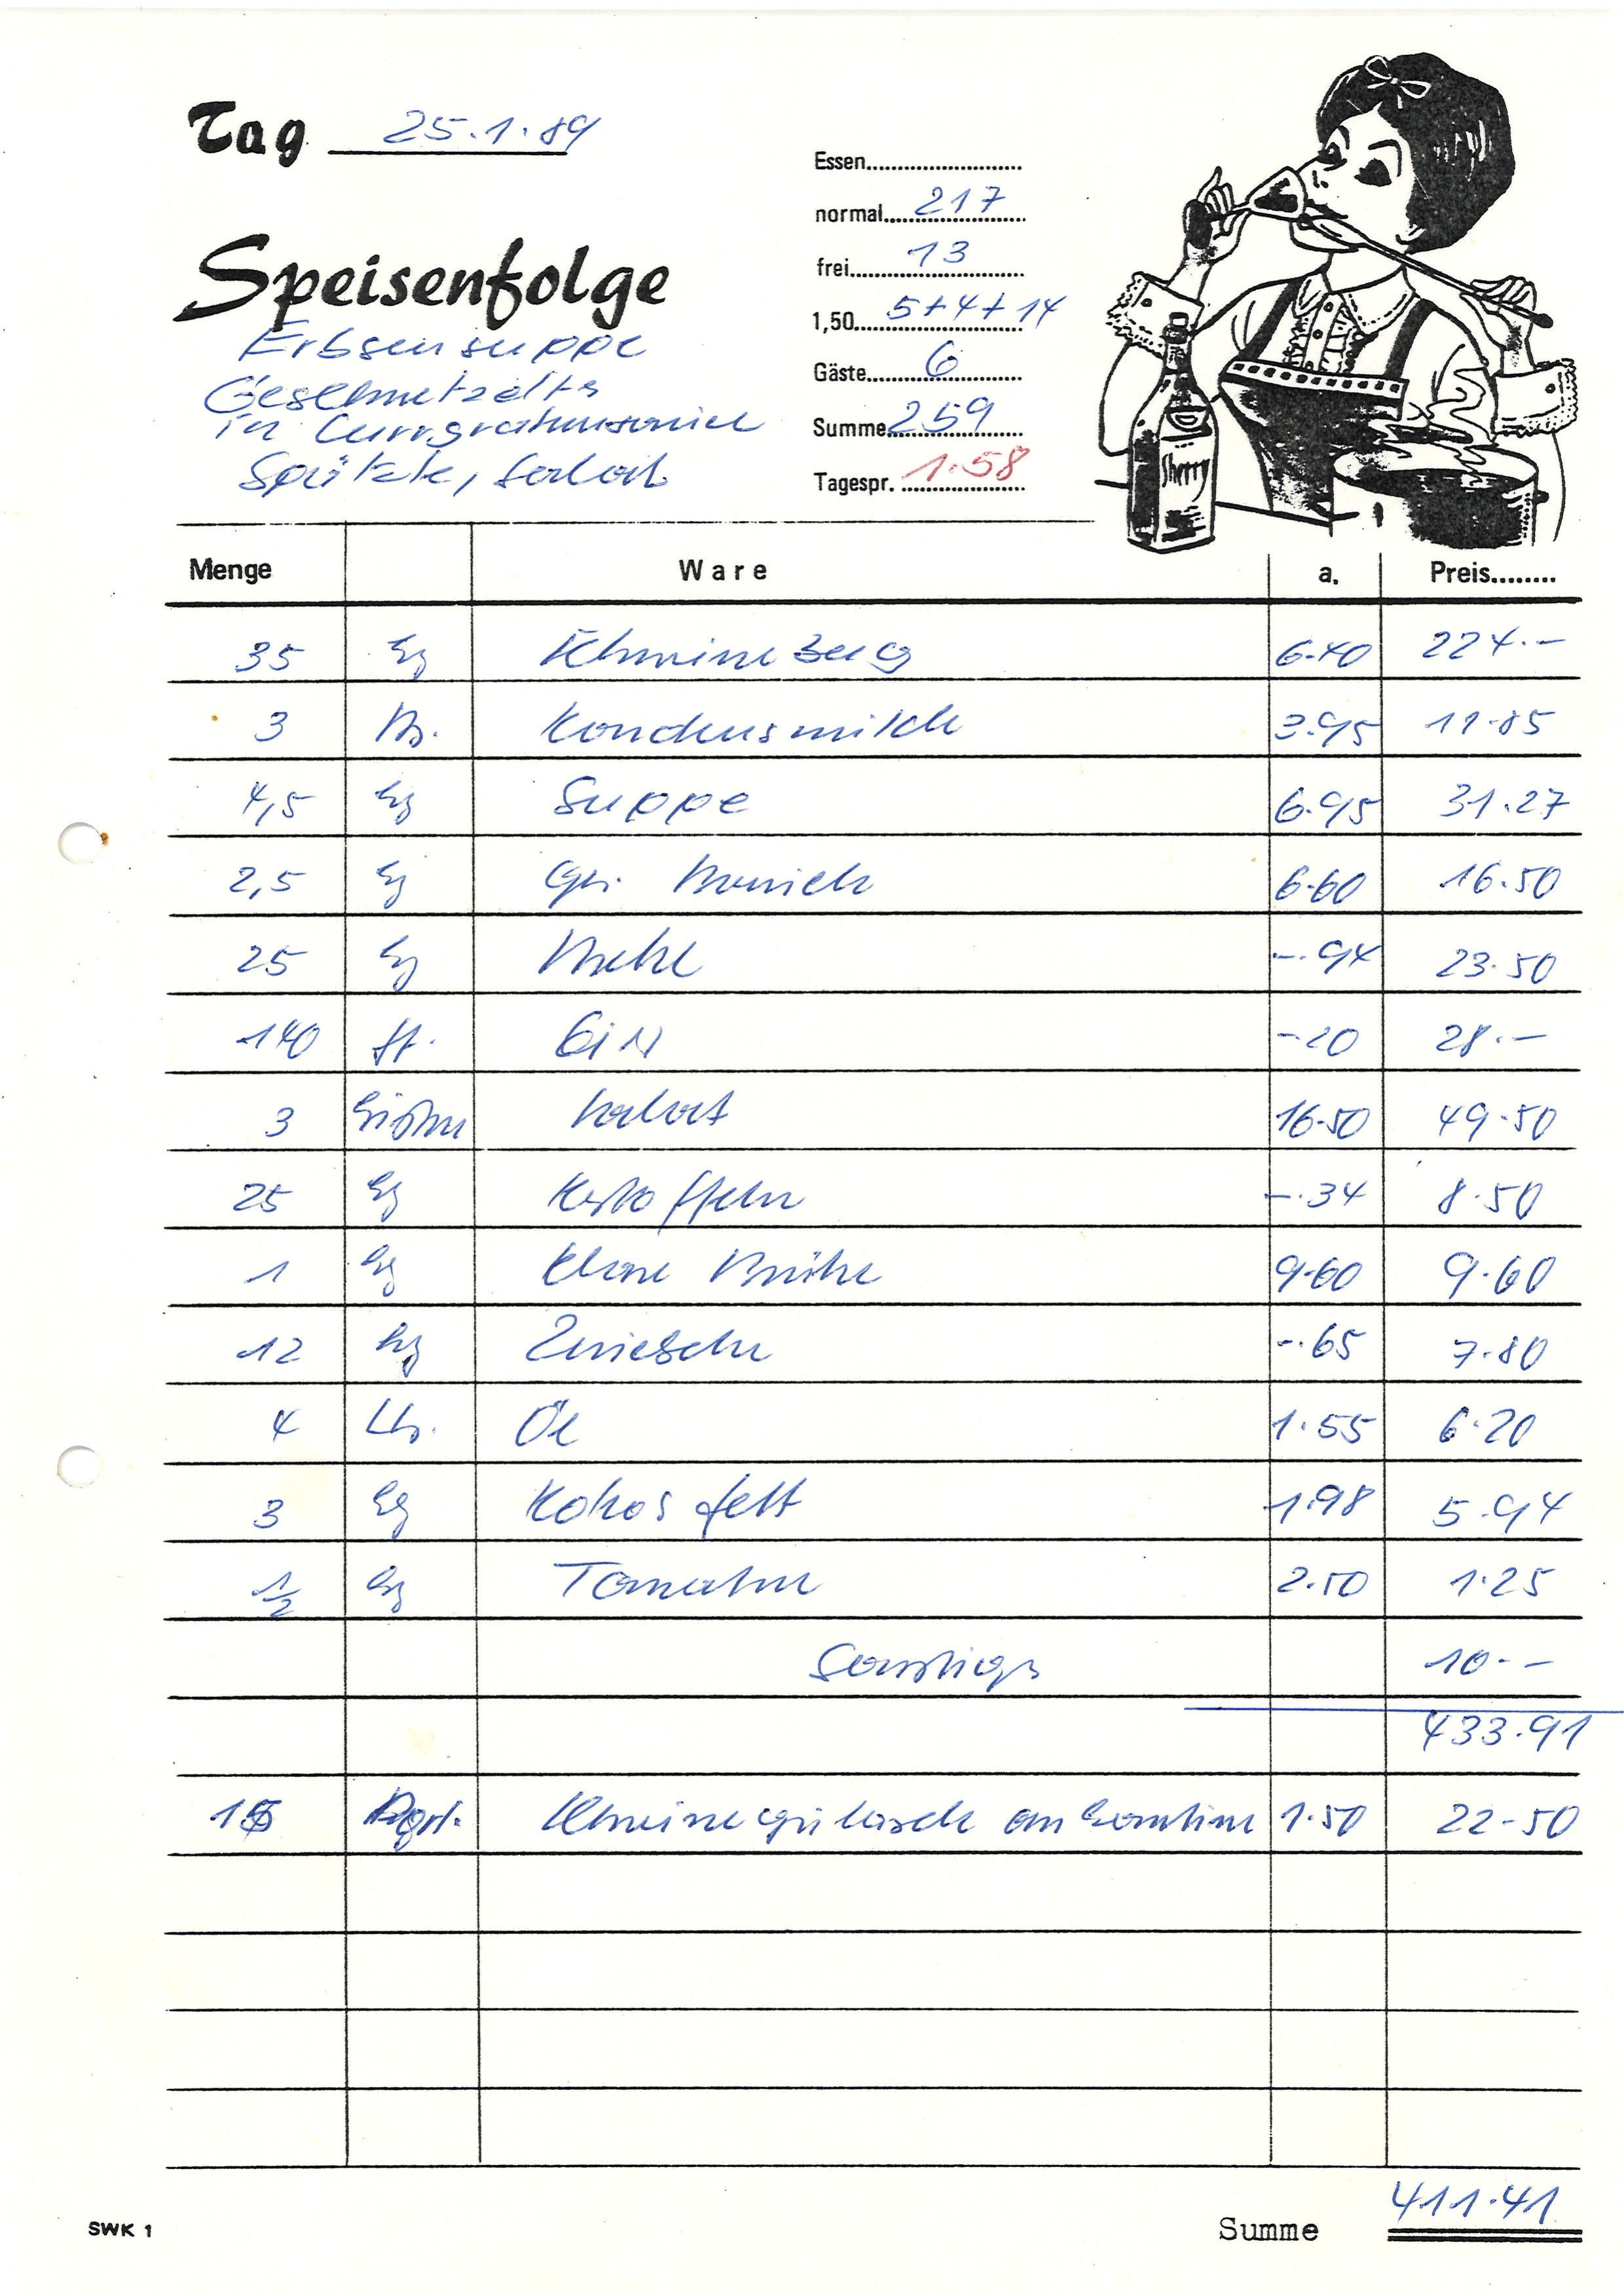 Tag 25.1.89
Essen
normal 217
frei 13
1,50 5+4+14
Gäste 6
Summe 259
Tagespr. 1.58
Speisenfolge
Erbsensuppe
Geschnetzeltes
in Curryrahmsauce
Spätzle, Salat
Sherry
Menge Ware a. Preis
35 kg Schweinebug 6.40 224.-
3 Ds. Kondensmilch 3.95 11.85
4,5 kg Suppe 6.95 31.27
2,5 kg 6.60 16.50
25 kg Mehl -.94 23.50
140 St. Eier -.20 28.-
3 Kisten Salat 16.50 49.50
25 kg Kartoffeln -.34 8.50
1 kg Klare Brühe 9.60 9.60
12 kg Zwiebeln -.65 7.80
4 Ltr. Öl 1.55 6.20
3 kg Kokosfett 1.98 5.94
1/2 kg Tomaten 2.50 1.25
Sonstiges 10.-
433.91
15 Port. Schweinegulasch an Kantine 1.50 22.50
411.41
SWK 1 Summe